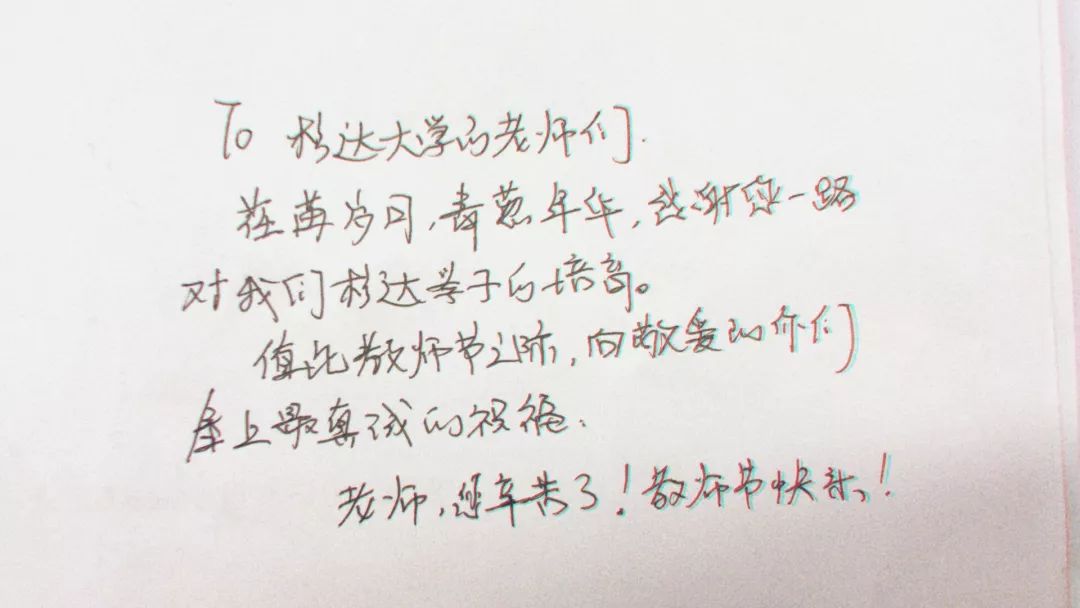 To 杉达大学的老师们.
荏苒岁月,青葱年华,感谢您一路
对我们杉达学子的培育。
值此教师节之际,向敬爱的你们
奉上最真诚的祝福:
老师,您辛苦了!教师节快乐!